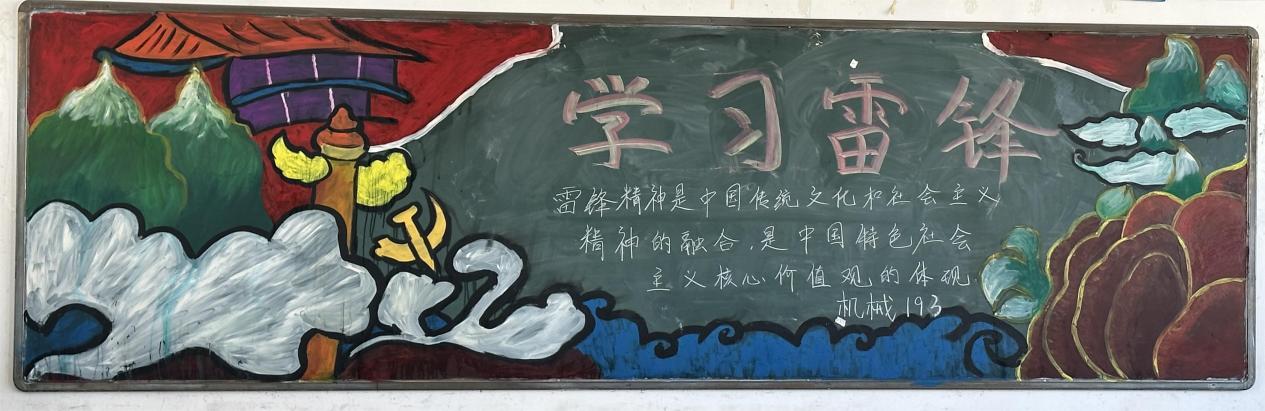 学习雷锋
雷锋精神是中国传统文化和社会主义
精神的融合,是中国特色社会
主义核心价值观的体现.
机械193